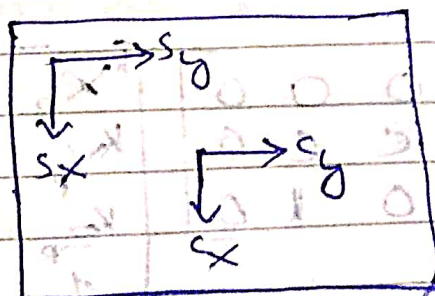 Sy
Sx
Cy
Cx